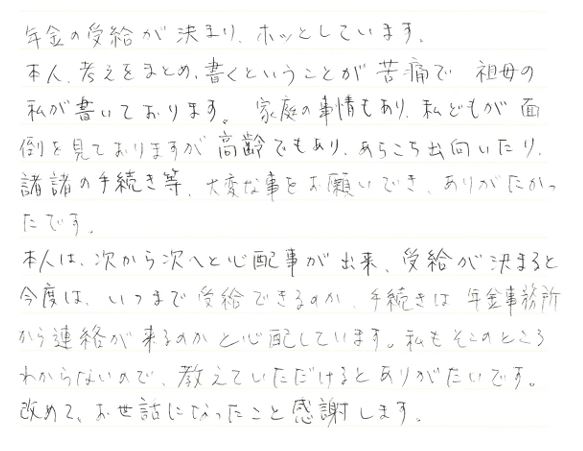 年金の受給が決まり、ホッとしています。
本人、考えをまとめ、書くということが苦痛で 祖母の
私が書いております。 家庭の事情もあり、私どもが面
倒を見ておりますが高齢でもあり、あちこち出向いたり、
諸諸の手続き等、大変な事をお願いでき、ありがたかっ
たです。
本人は、次から次へと心配事が出来、受給が決まると
今度は、いつまで受給できるのか、手続きは年金事務所
から連絡が来るのかと心配しています。私もそこのところ
わからないので、教えていただけるとありがたいです。
改めて、お世話になったこと感謝します。